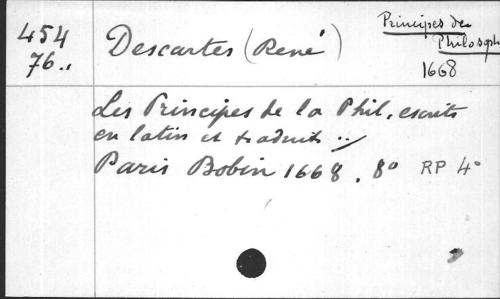 454
76..
Descartes (René)
Principes de
Philosoph
1668
Les Principes de la Phil. escrits
en latin et traduits ..
Paris Bobin 1668. 8° RP 4°